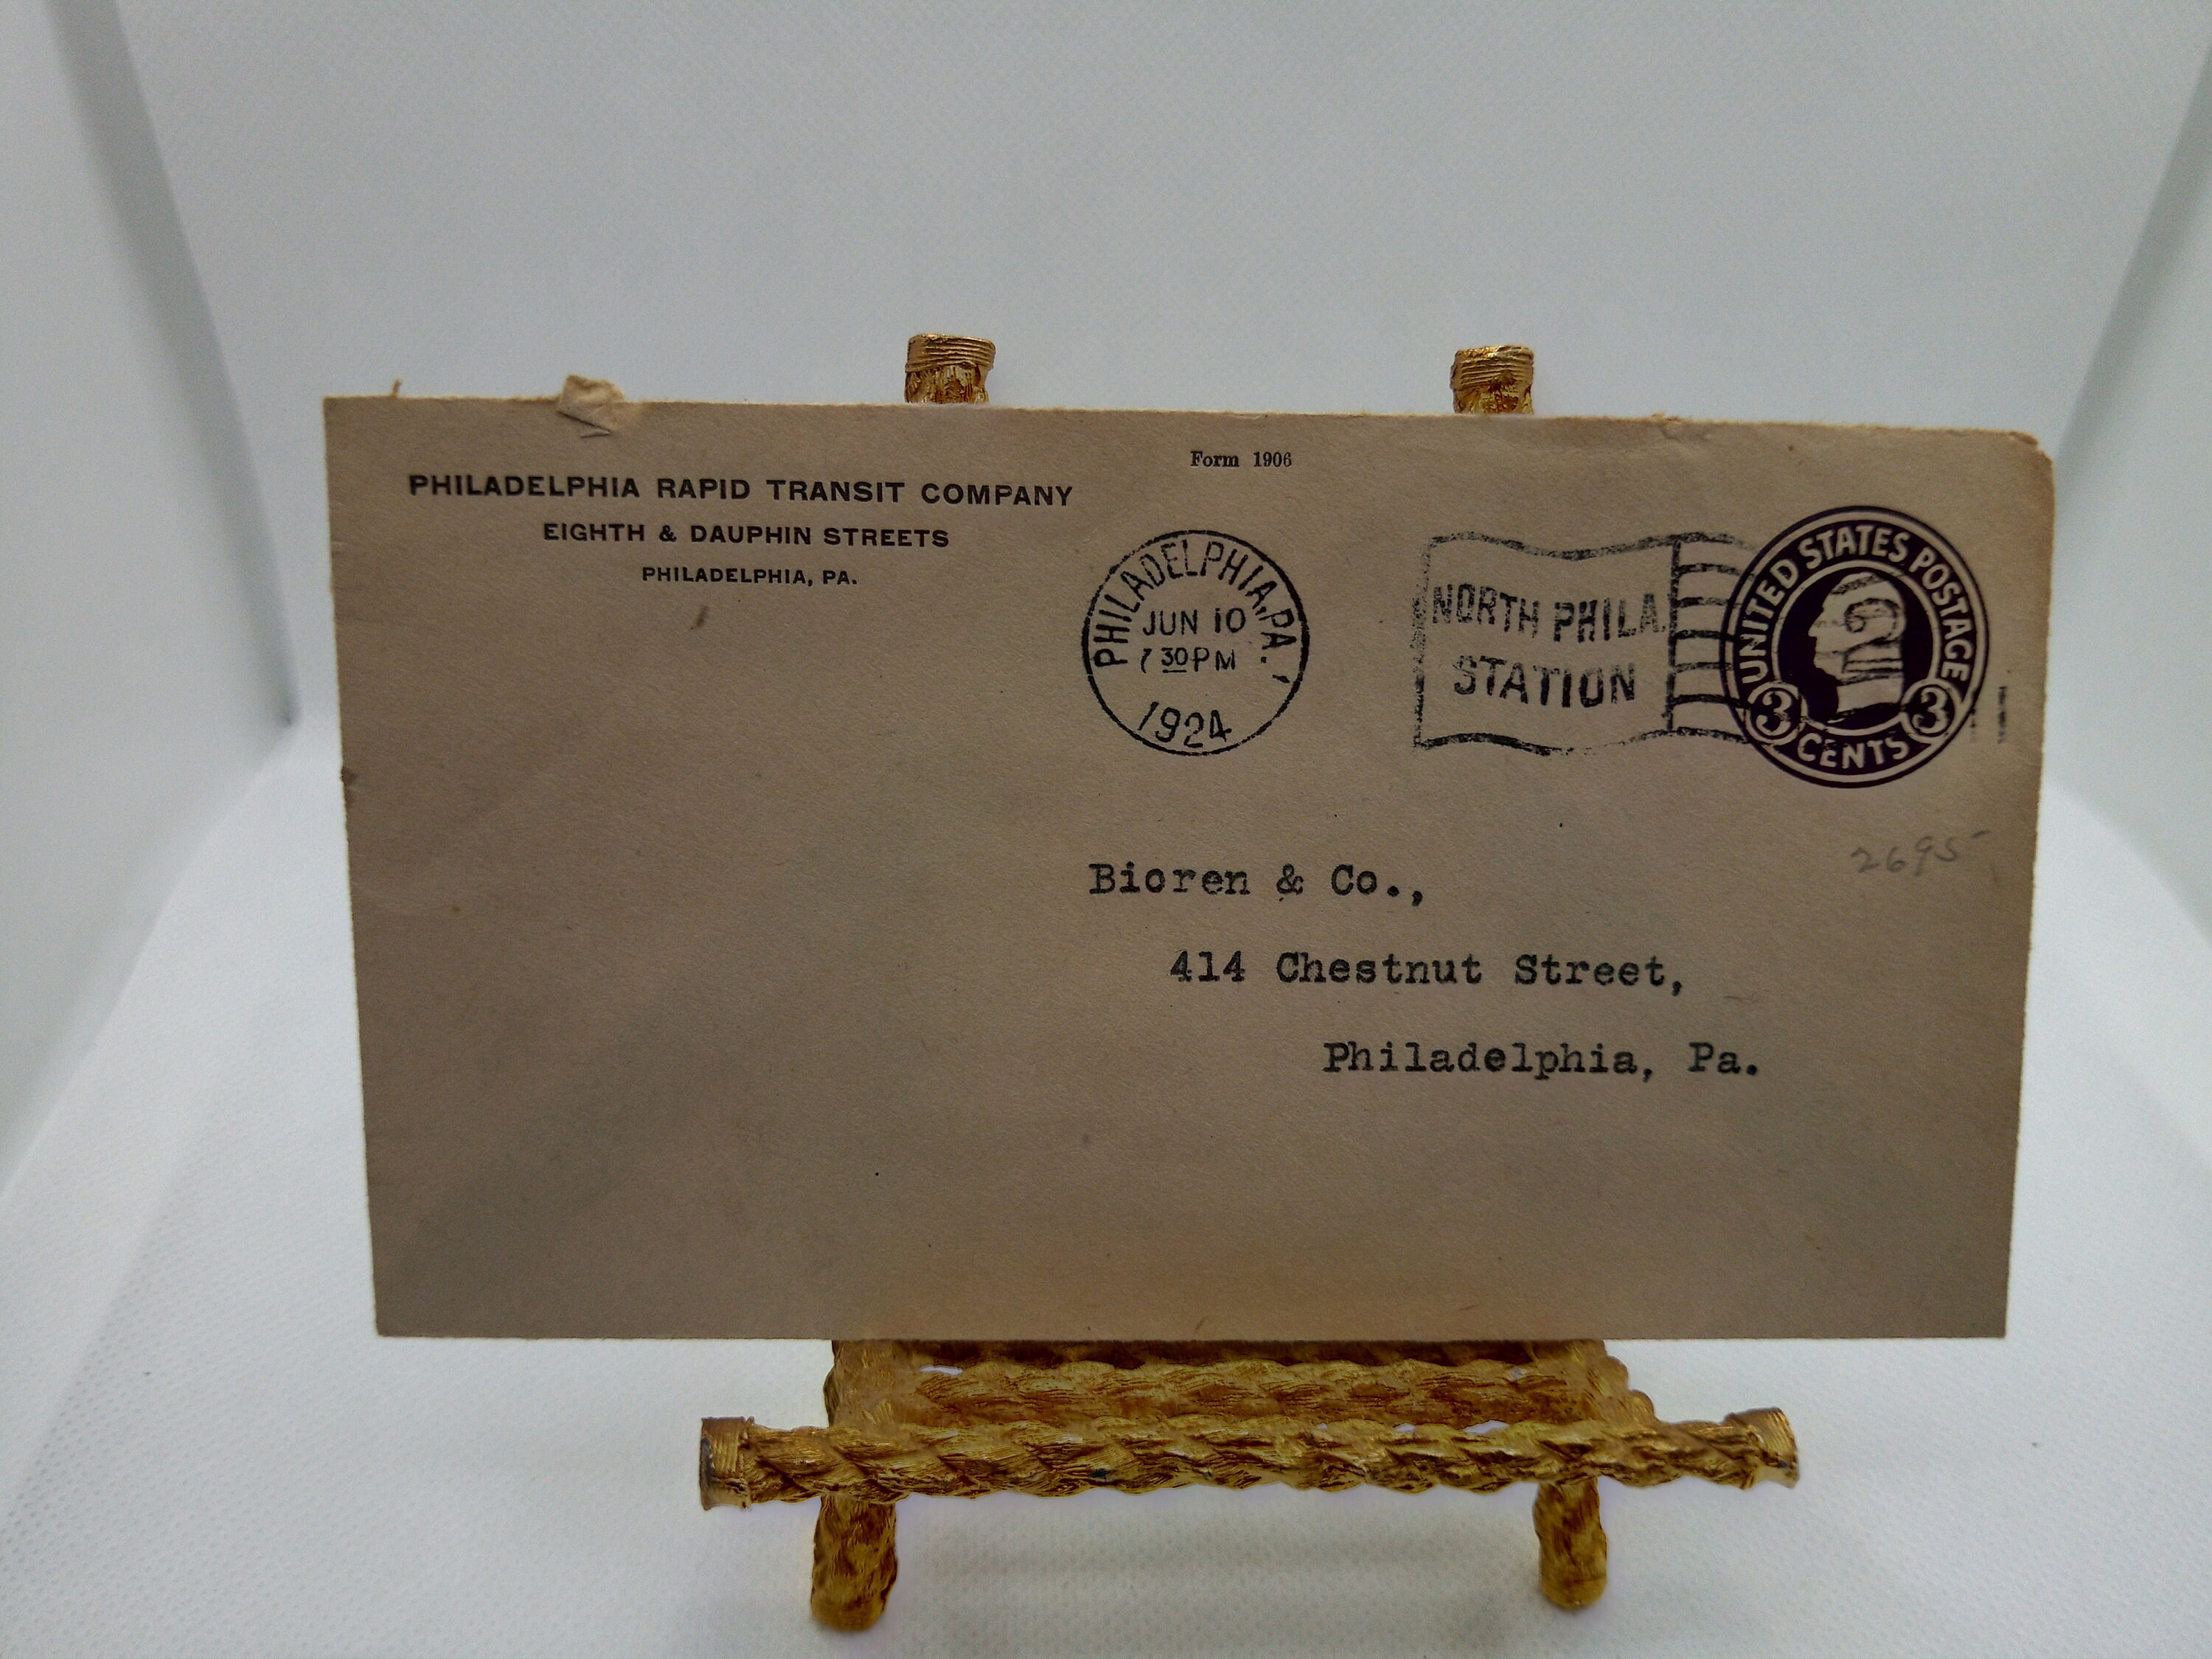 Form 1906
PHILADELPHIA RAPID TRANSIT COMPANY
EIGHTH & DAUPHIN STREETS
PHILADELPHIA, PA.
PHILADELPHIA, PA.
JUN 10
7 30 PM
1924
NORTH PHILA.
STATION
UNITED STATES POSTAGE
3 3
CENTS
2695
Bioren & Co.,
414 Chestnut Street,
Philadelphia, Pa.